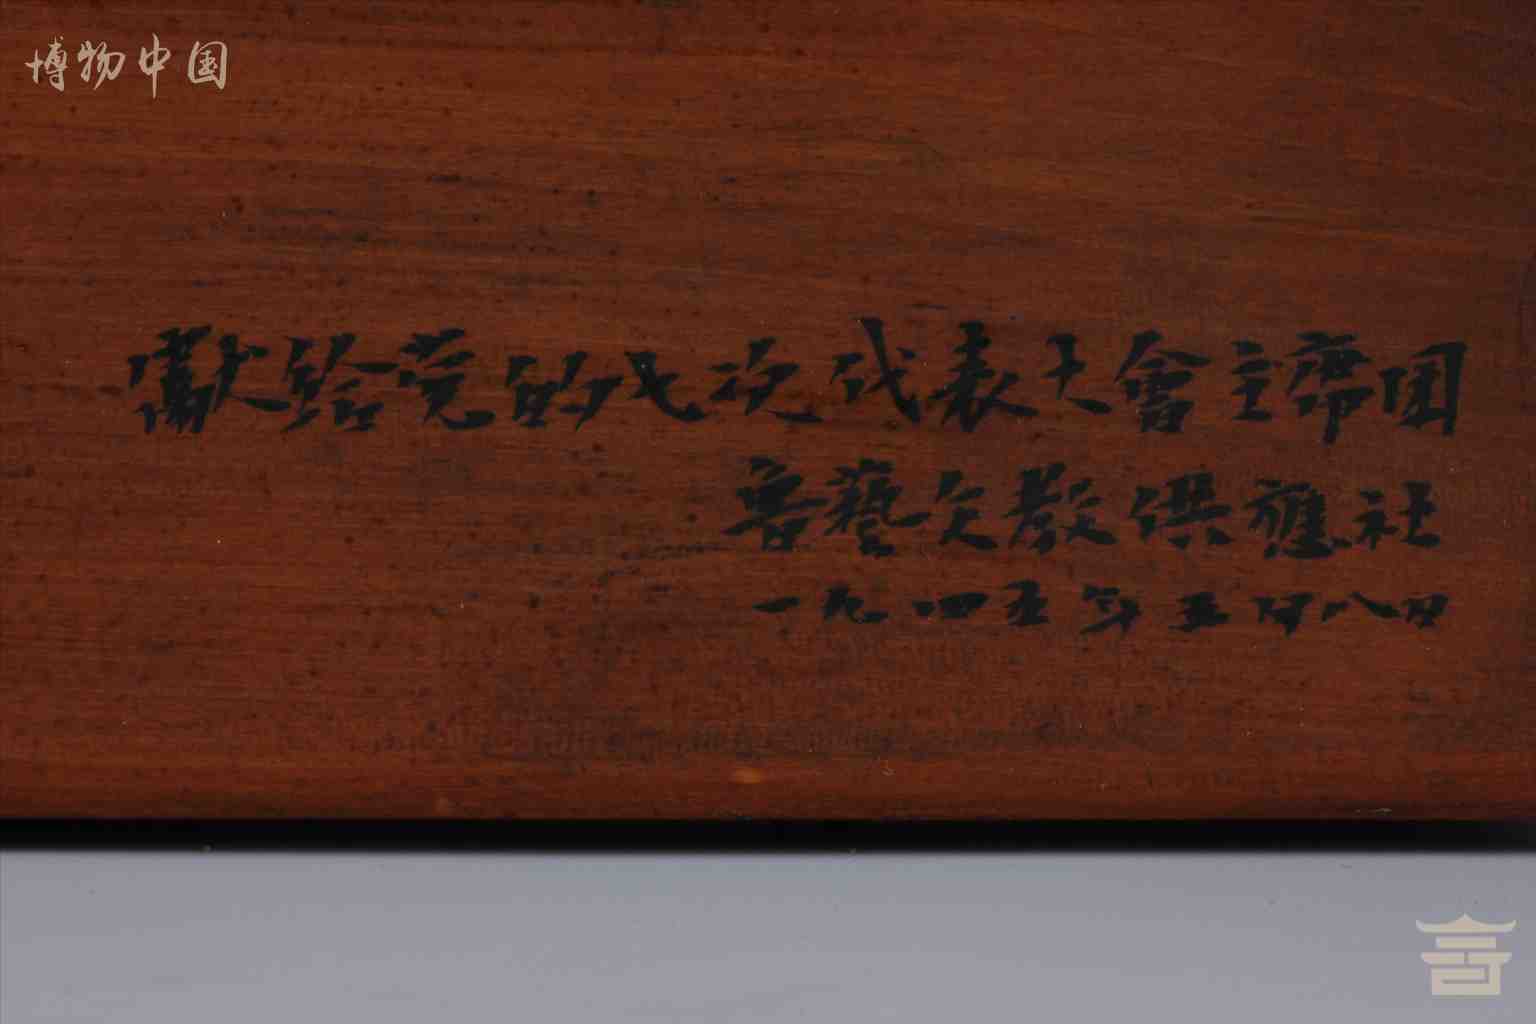 博物中国
獻给党的七次代表大會主席团
鲁藝文教供應社
一九四五年五月八日